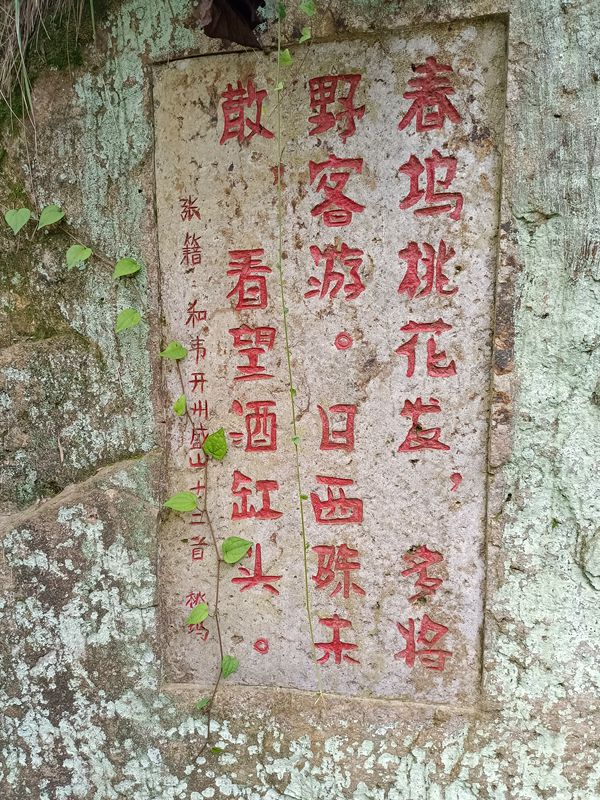 春坞桃花发，多将
野客游。日西殊未
散，看望酒缸头。
张籍：和韦开州盛山十二首 桃坞